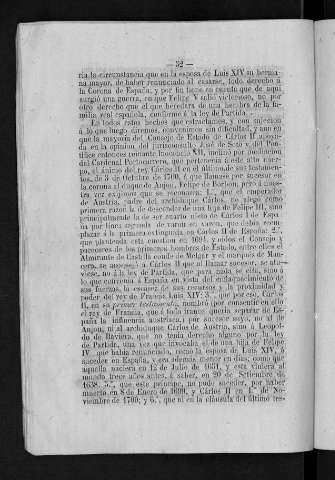 — 52 —
ria la circunstancia que en la esposa de Luis XIV su herma-
na mayor, de haber renunciado al casarse, todo derecho á
la Corona de España; y por fin tiene en cuenta que de aquí
surgió una guerra, en que Felipe V salió victorioso, no por
otro derecho que el que heredara de una hembra de la fa-
milia real española, conforme á la ley de Partida.
En todos estos hechos que estractamos, y con sujecion
á lo que luego diremos, convenimos sin dificultad, y aun en
que la mayoría del Consejo de Estado de Cárlos II apoya-
da en la opinion, del jurisconsulto José de Soto y del Pon-
tífice entonces reinante Inocencio XII, inclinó por mediacion
del Cardenal Portocarrero, que pertenecia á este alto cuerpo,
el ánimo del rey Cárlos II en el ultimado de sus testamen-
tos, de 3 de Octubre de 1700, á que llamara por sucesor en
la corona al duque de Anjou, Felipe de Borbon, pero á nues-
tra vez exijimos que se reconozca: 1.º, que el emperador
de Austria, padre del archiduque Cárlos, no alegó como
primera razon la de descender de una hija de Felipe III, sino
principalmente la de ser cuarto nieto de Cárlos I de Espa-
ña por línea segunda de varon se caron, que debia reem-
plazar á la primera estinguida en Cárlos II de España: 2.º
que planteada esta cuestion en 1694, y oidos el Consejo y
pareceres de los primeros hombres de Estado, entre ellos el
Almirante de Castilla conde de Melgar y el marqués de Man-
cera, se aconsejó á Cárlos II que al llamar sucesor, se atu-
viese, no á la ley de Partida, que para nada se cita, sino á
lo que convenia á España en vista del enflaquecimiento de
sus fuerzas, la escasez de sus recursos y la proximidad y
poder del rey de Francia Luis XIV: 3.º, que por eso, Cárlos
II, en su primer testamento, nombró (por consentir en ello
el rey de Francia, que á todo trance queria separar de Es-
paña la influencia austriaca) por sucesor suyo, no al de
Anjou, ni al archiduque Cárlos de Austria, sino á Leopol-
do de Baviera, que no tenia derecho alguno por la ley
de Partida, una vez que invocaba el de una hija de Felipe
IV que habia renunciado, como la esposa de Luis XIV, á
suceder en España, y era además menor en dias, como que
aquella naciera en 12 de Julio de 1651, y esta viniera al
mundo trece años antes, á saber, en 20 de Setiembre de
1638. 5.º, que este príncipe, no pudo suceder, por haber
muerto en 8 de Enero de 1699, y Cárlos II en 1.º de No-
viembre de 1700; y 6.º, que ni en la cláusula del último tes-